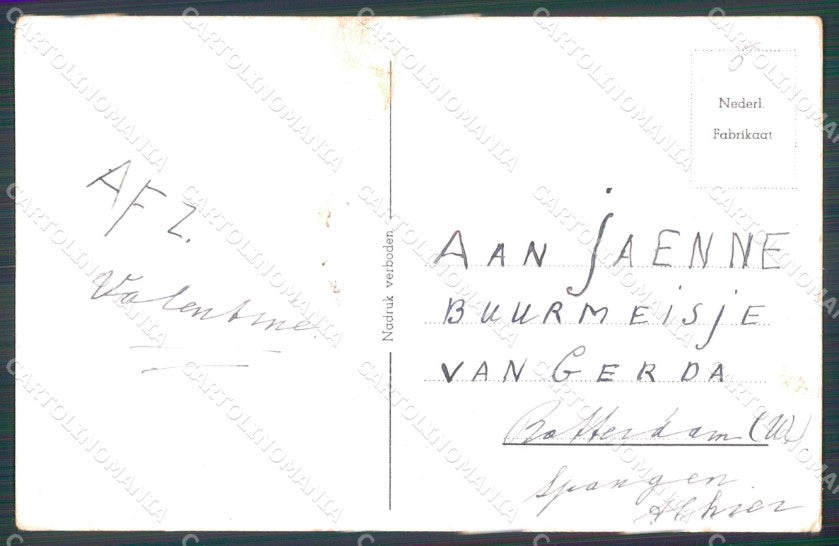 Nederl.
Fabrikaat
AFZ.
Valentine.
Nadruk verboden
AAN jAENNE
BUURMEISjE
VAN GERDA
Rotterdam (W)
Spangen
Alhier
CARTOLINOMANIA